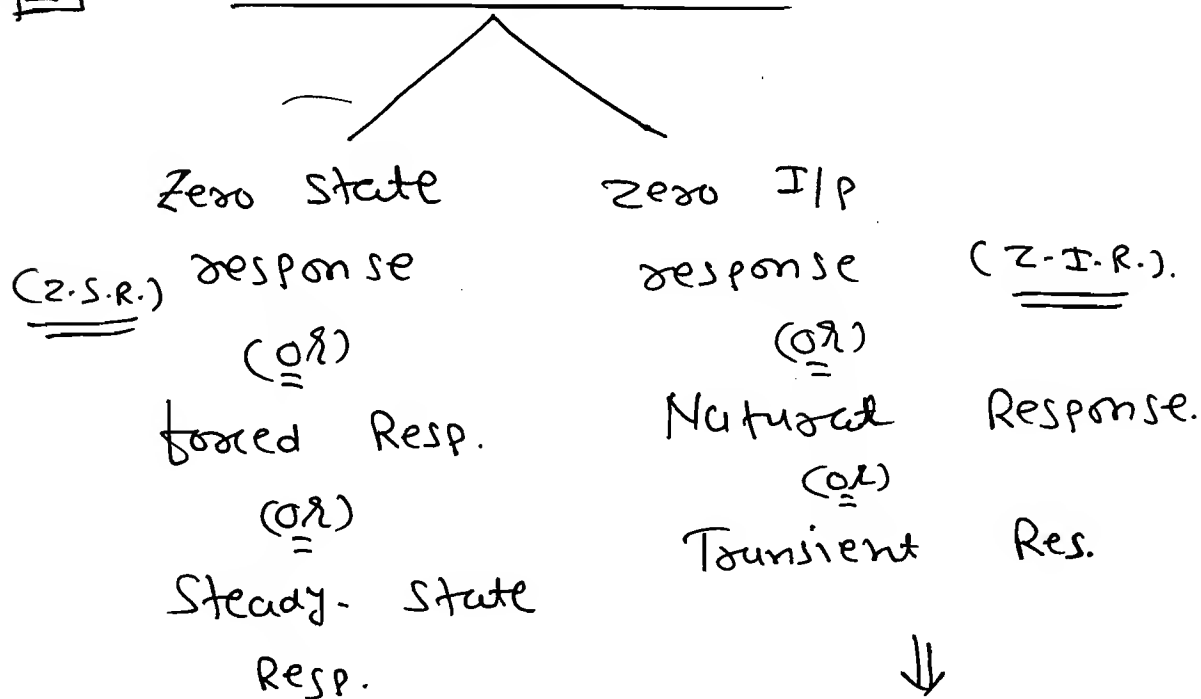 Zero state
response
(Z.S.R.)
(or)
forced Resp.
(or)
Steady-state
Resp.
zero I/p
response
(Z.I.R.).
(or)
Natural Response.
(or)
Transient Res.
⇓